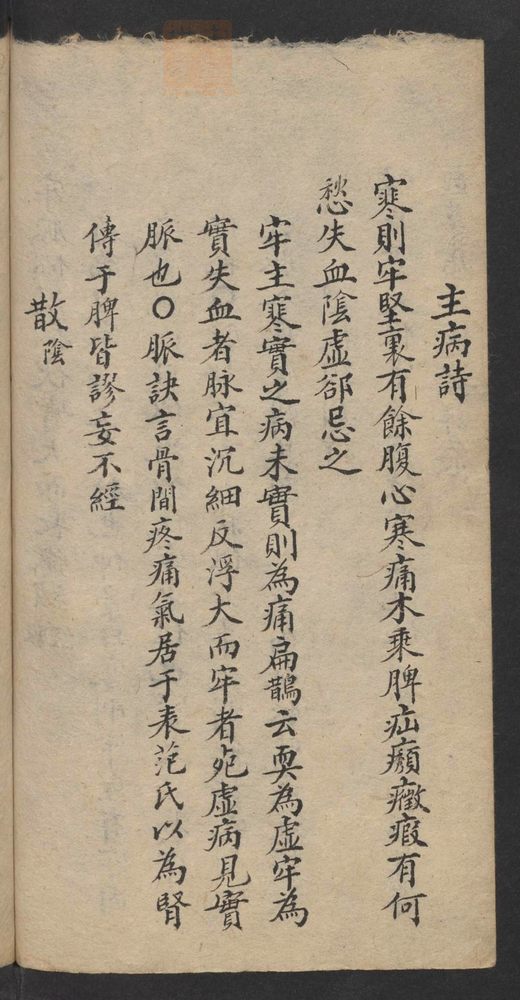 主病詩
寒則牢堅裏有餘腹心寒痛木乘脾疝㿗癥瘕有何
愁失血陰虛郤忌之
牢主寒實之病木實則為痛扁鵲云耎為虛牢為
實失血者脉宜沉細反浮大而牢者死虛病見實
脈也〇脈訣言骨間疼痛氣居于表范氏以為腎
傳于脾皆謬妄不經
散陰